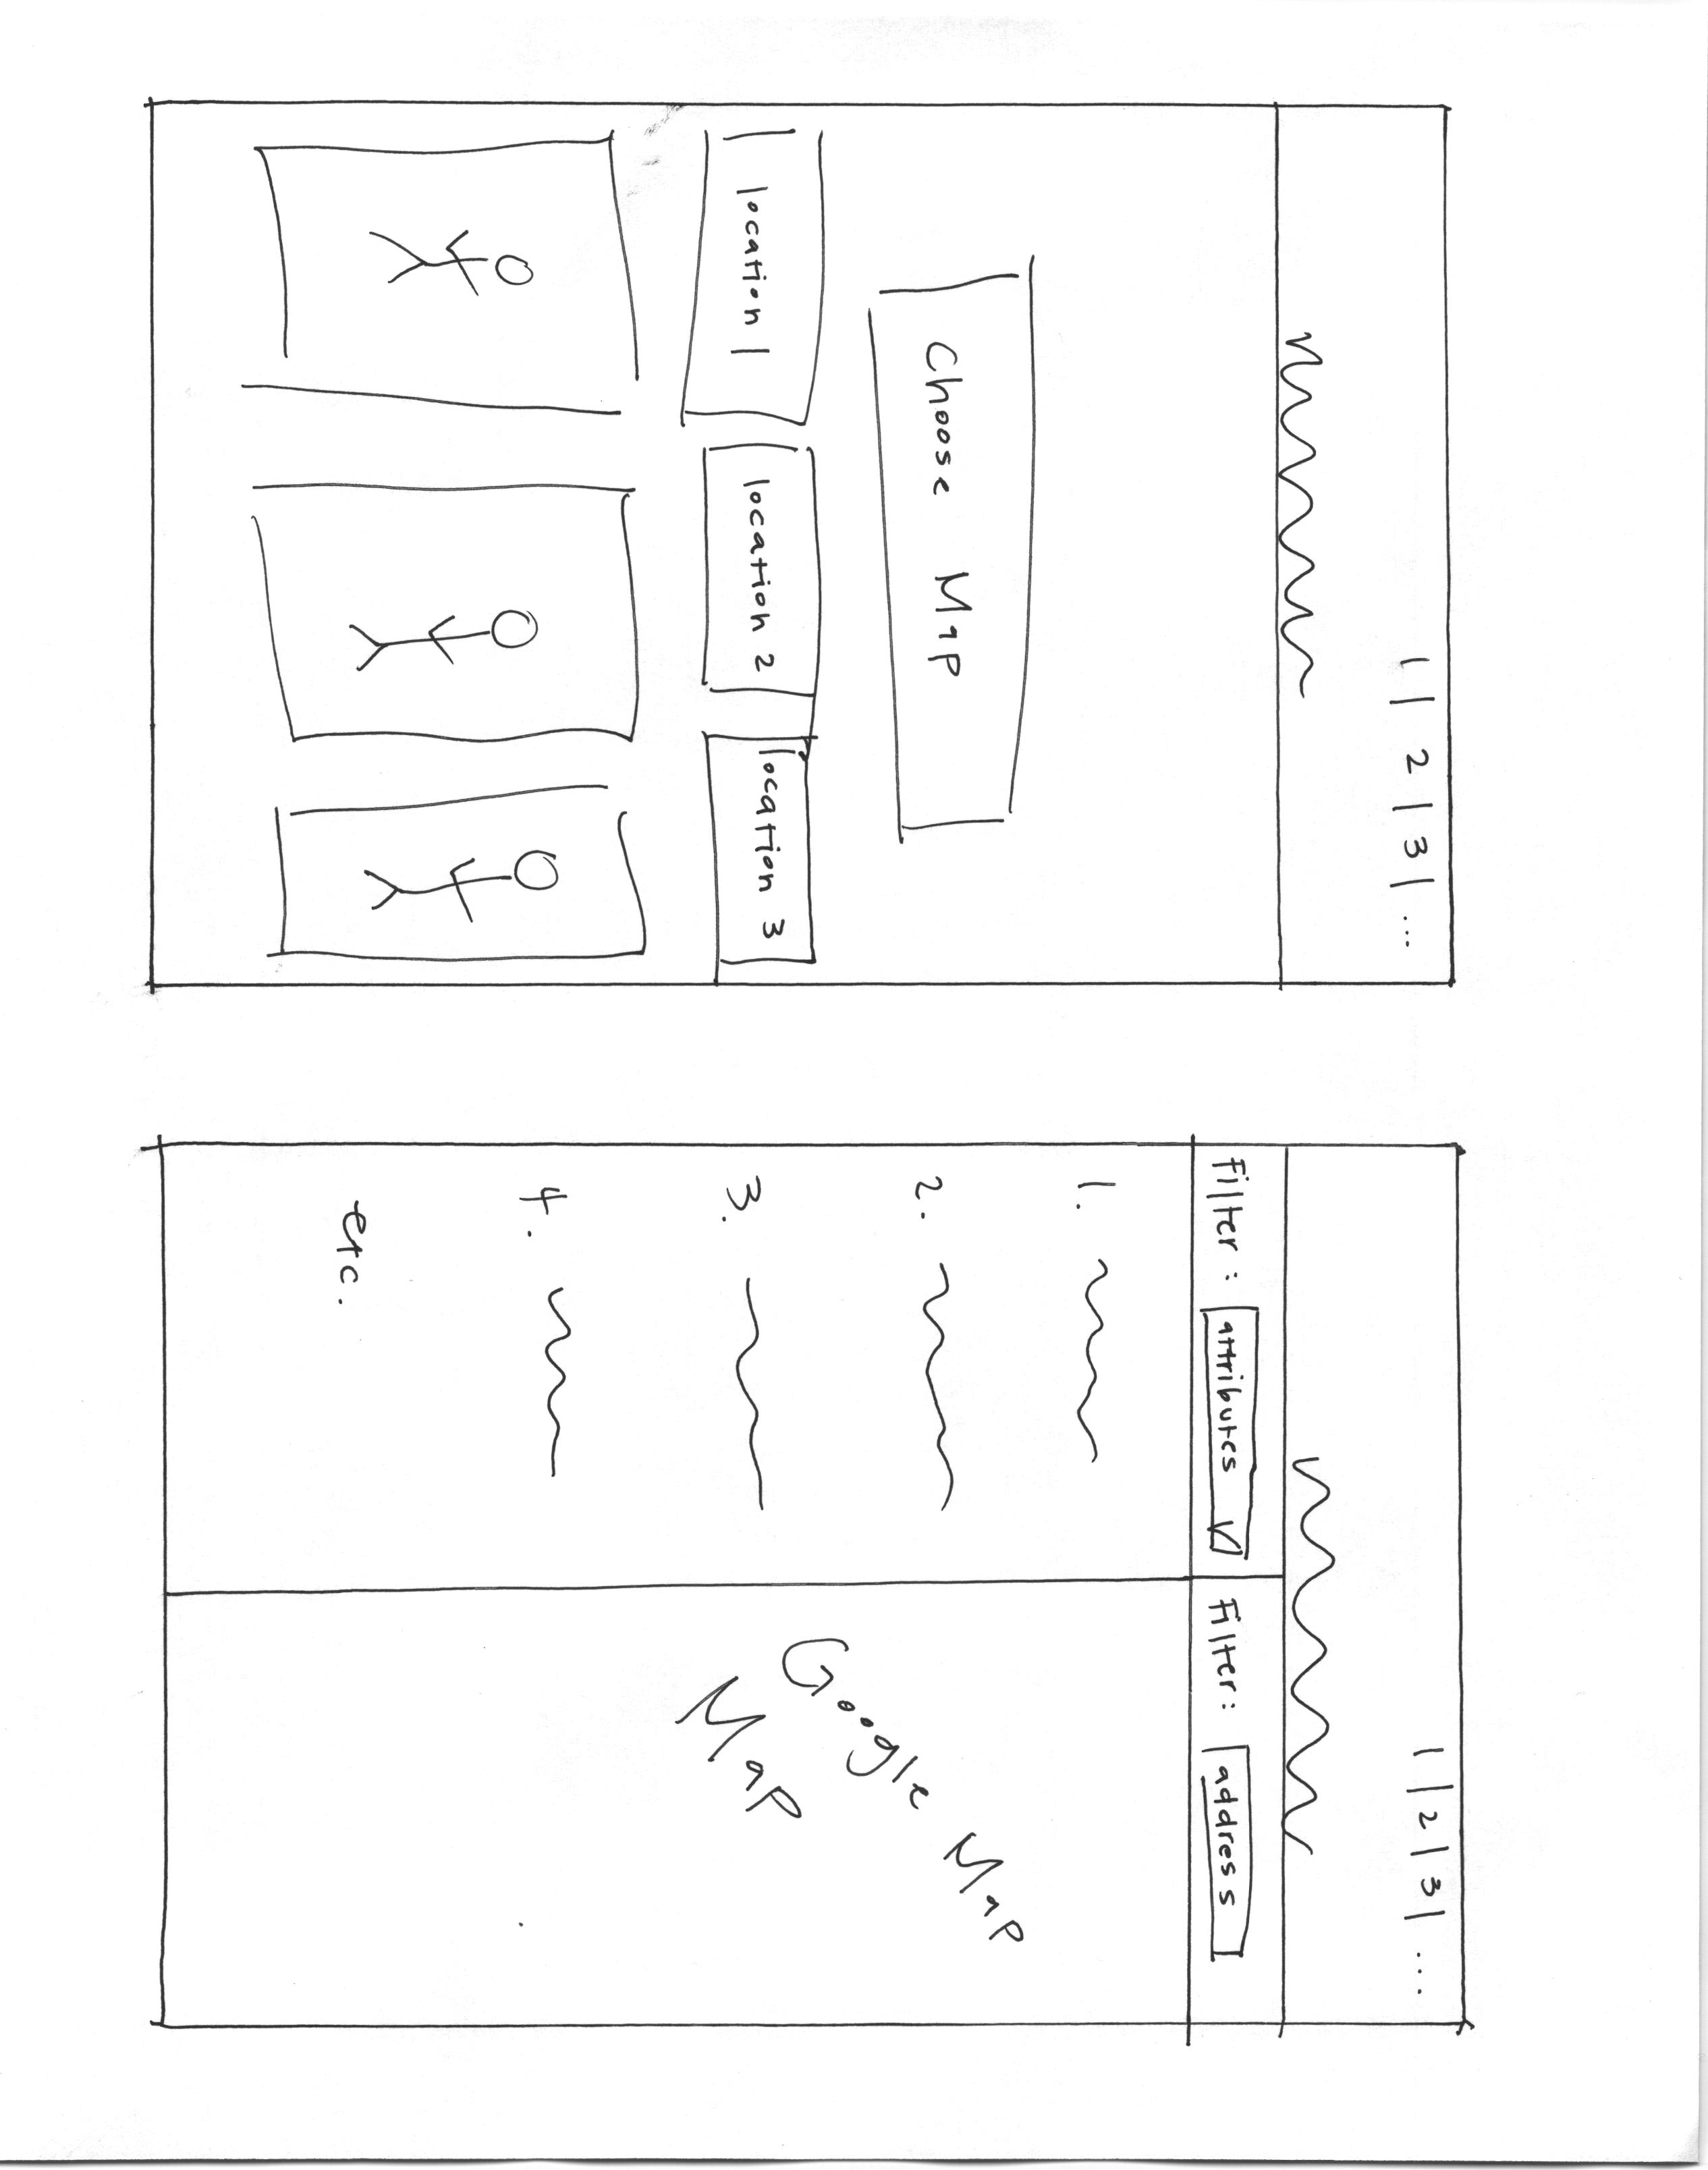 1 | 2 | 3 | ...
Choose Map
location 1 location 2 location 3
1 | 2 | 3 | ....
Filter: attributes Filter: address
1.
2.
3.
4.
etc.
Google Map
Map